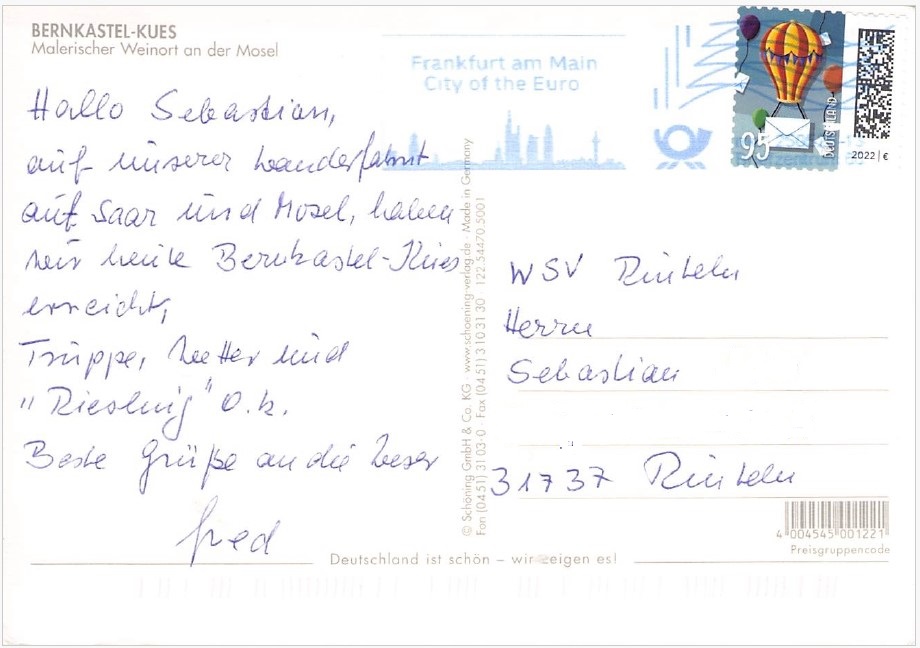 BERNKASTEL-KUES
Malerischer Weinort an der Mosel
Hallo Sebastian,
auf unserer Wanderfahrt
auf Saar und Mosel, haben
wir heute Bernkastel-Kues
erreicht,
Truppe, Wetter und
"Riesling" O.k.
Beste Grüße an die Weser
Fred
Frankfurt am Main
City of the Euro
95
DEUTSCHLAND
2022 | €
© Schöning GmbH & Co. KG · www.schoening-verlag.de · Made in Germany
Fon (04 51) 31 03-0 · Fax (04 51) 3 10 31 30 · 122 54470 5001
WSV Rinteln
Herrn
Sebastian
31737 Rinteln
4 004545 001221
Preisgruppencode
Deutschland ist schön – wir zeigen es!